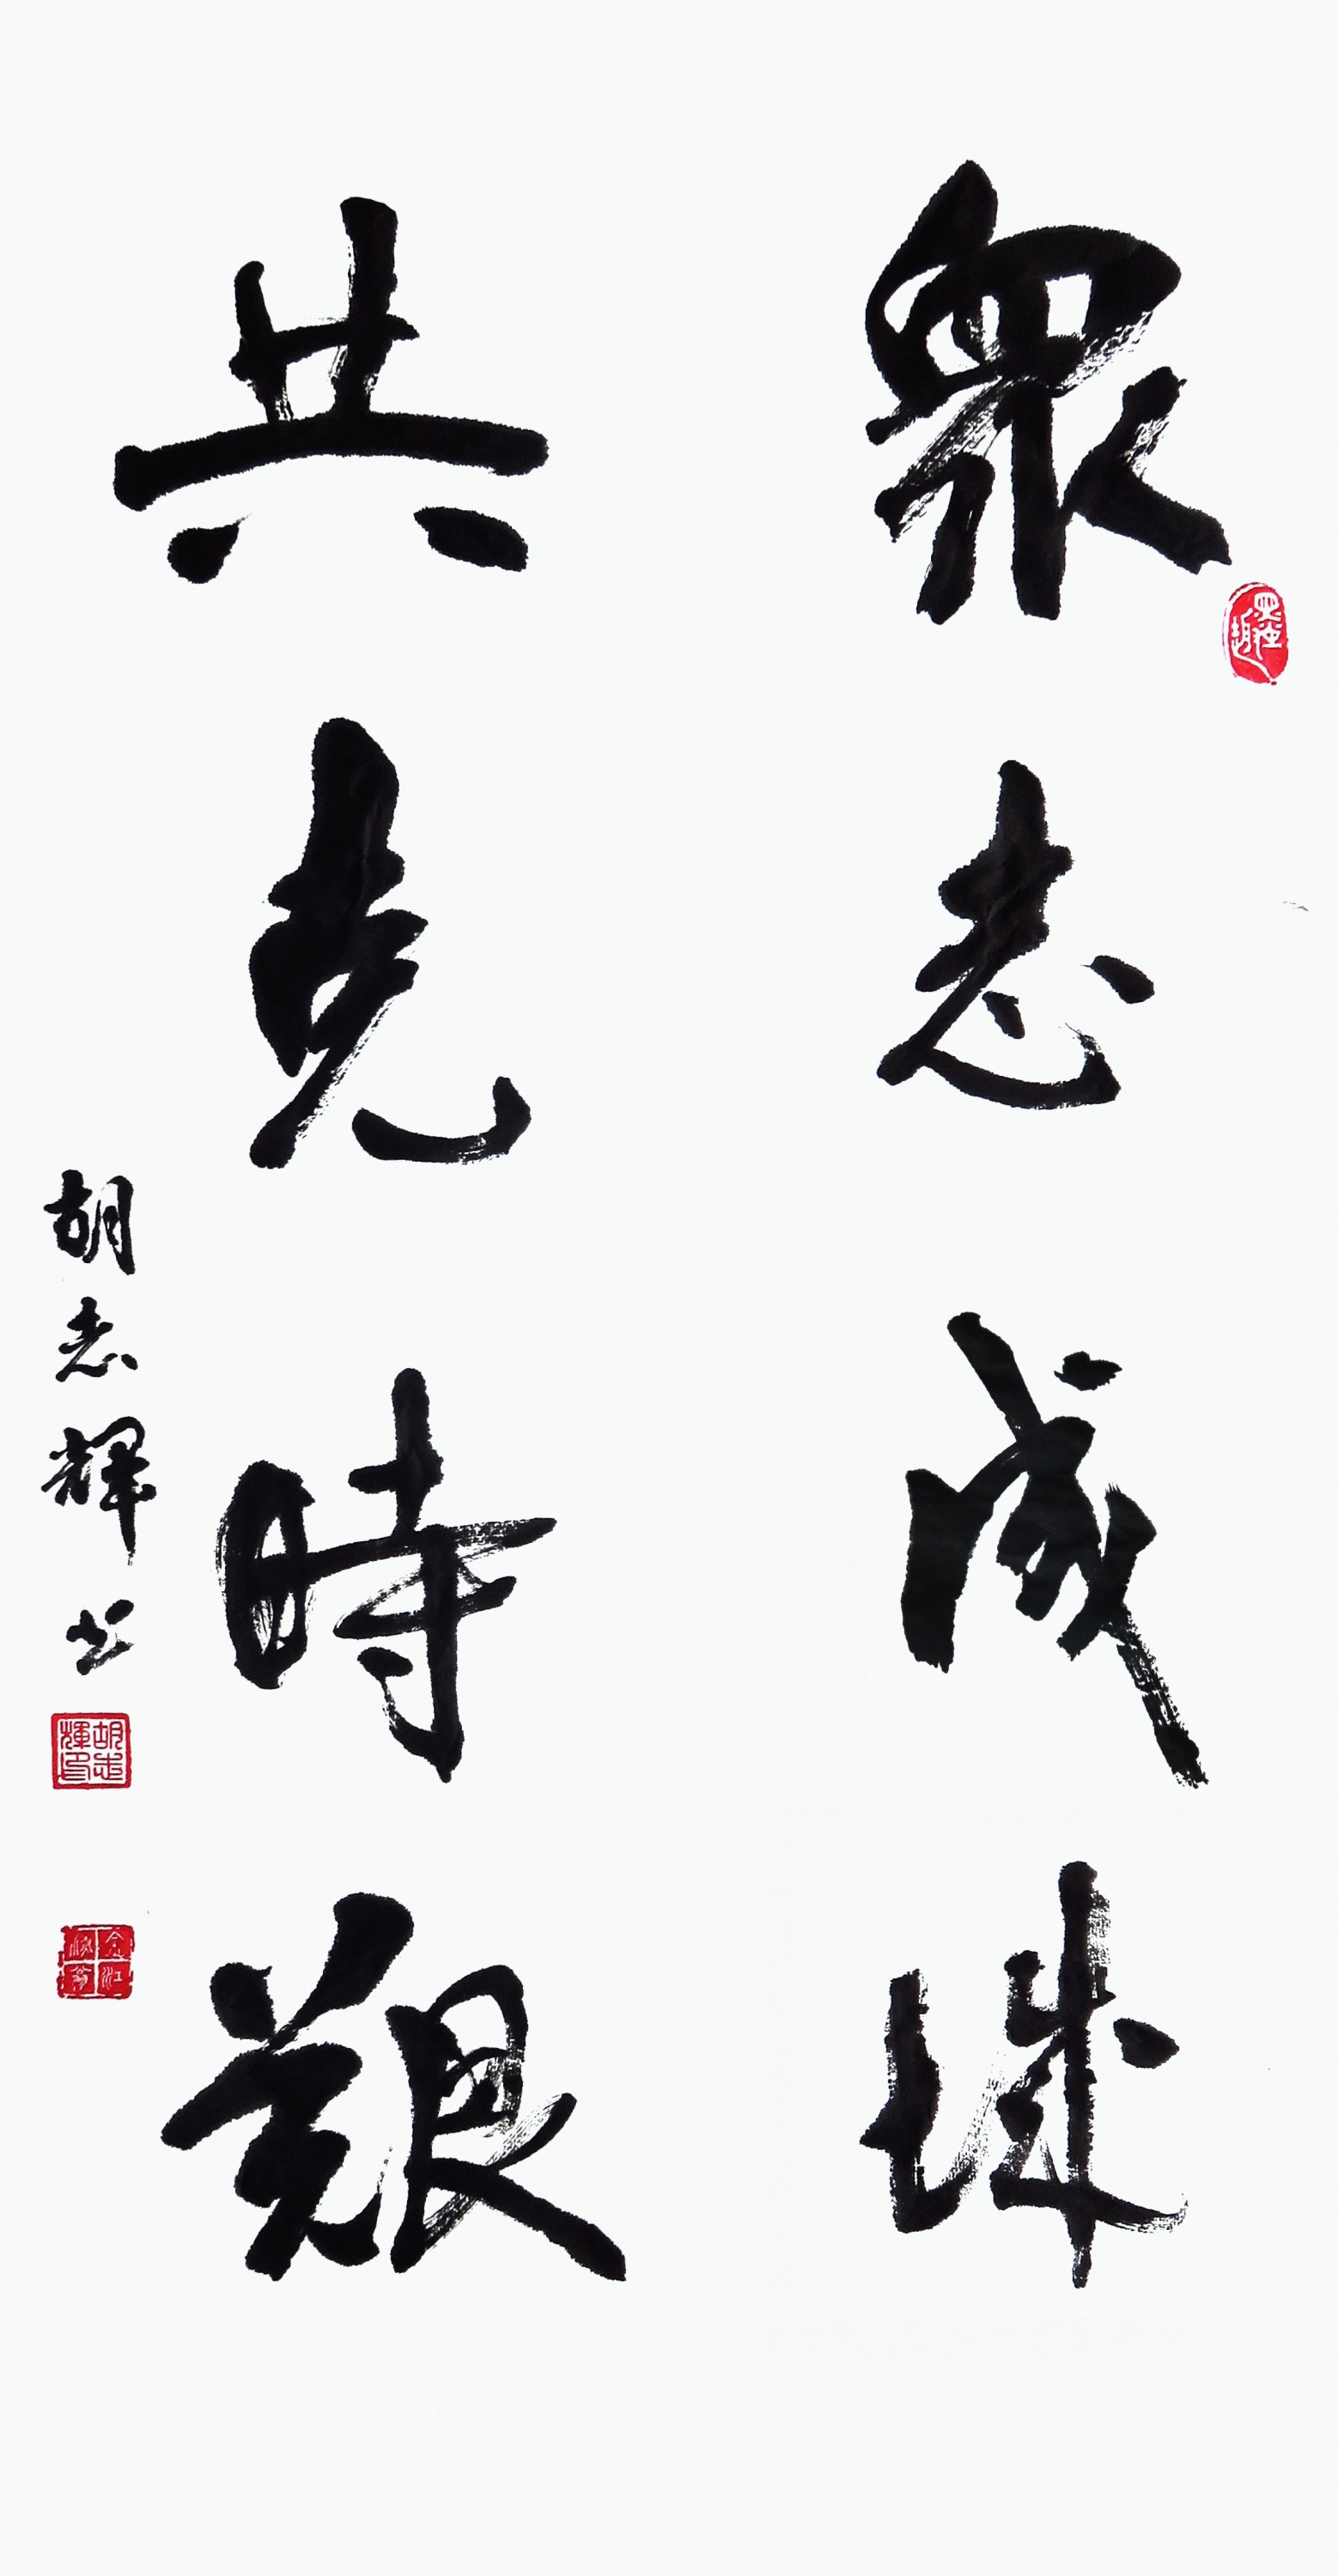 眾志成城
共克時艱
胡志輝书
墨趣
胡志輝印